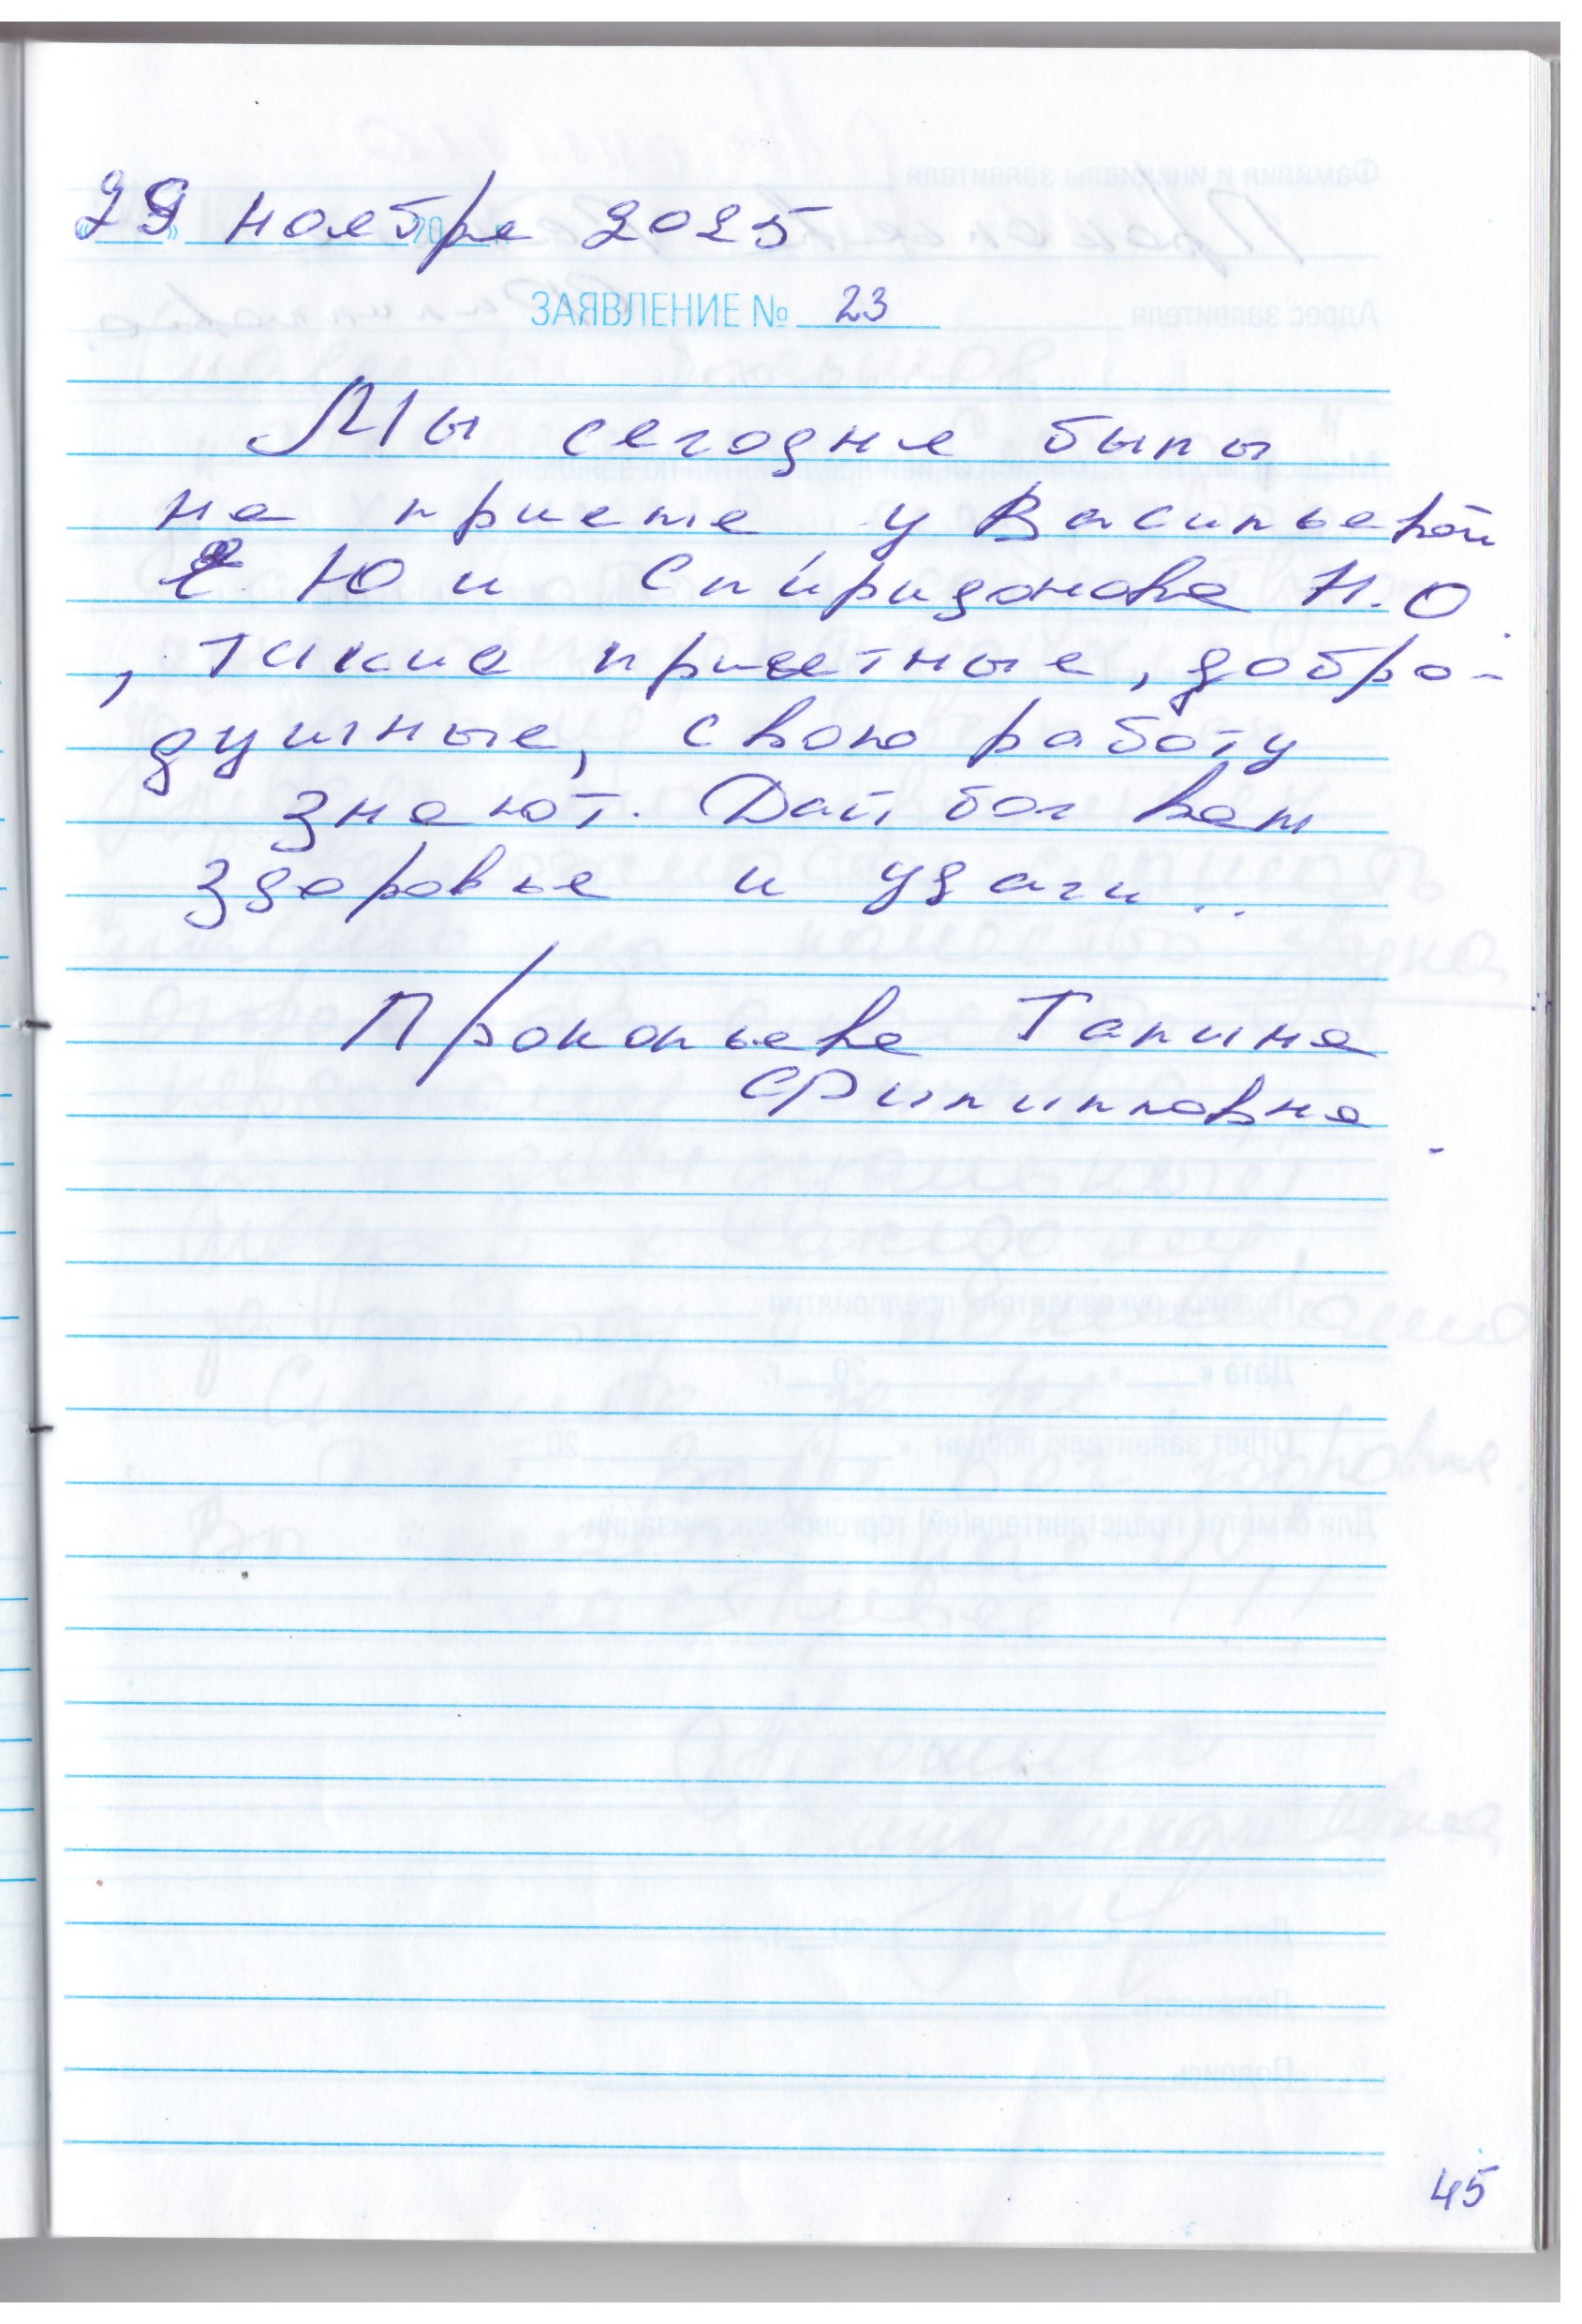 29 ноября 2025
ЗАЯВЛЕНИЕ № 23
Мы сегодня были
на приеме у Васильевой
Ю и Спиридонова Н.О
, такие приятные, добро-
душные, свою работу
знают. Дай бог вам
здоровье и удачи...
Прокопьева Галина
Филипповна
45